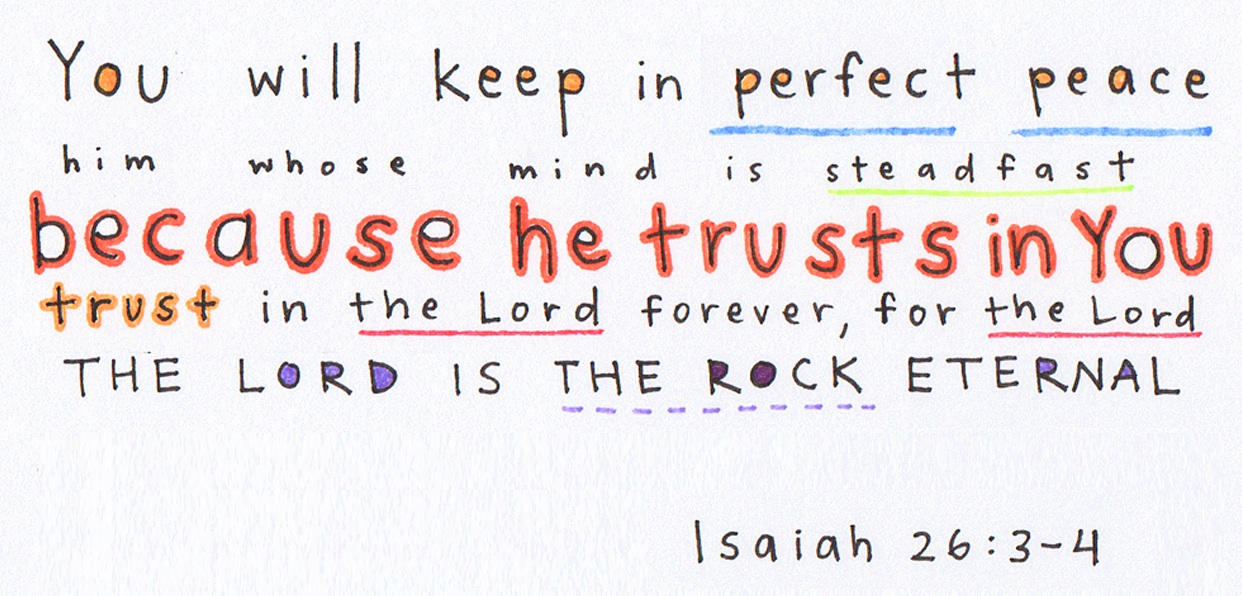 You will keep in perfect peace
him whose mind is steadfast
because he trusts in You
trust in the Lord forever, for the Lord
THE LORD IS THE ROCK ETERNAL
Isaiah 26:3-4